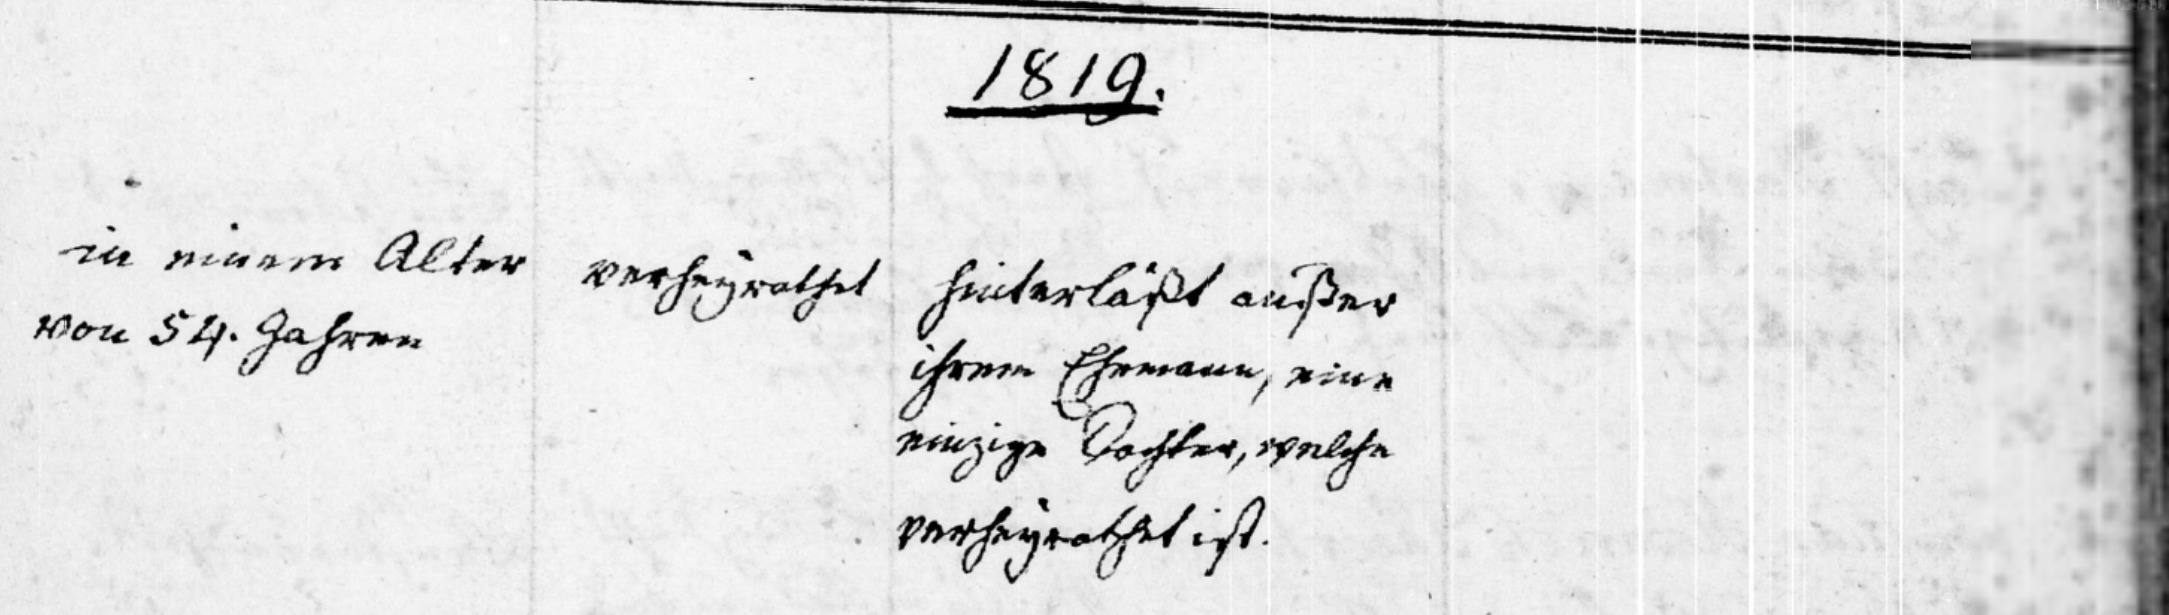 1819.
in einem Alter
von 54. Jahren
verheyrathet
hinterläßt außer
ihrem Ehemann, eine
einzige Tochter, welche
verheyrathet ist.